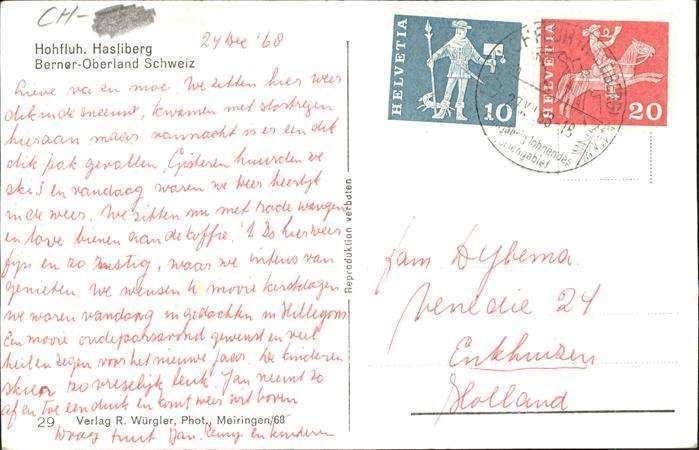 CH-
24 Dec '68
Hohfluh. Hasliberg
Berner-Oberland Schweiz
Lieve va en moe. We zitten hier weer
dik in de sneeuw, kwamen met stortregen
hieraan maar vannacht is er een dik
dik pak gevallen. Gisteren huurden we
ski's en vandaag waren we weer heerlijk
in de weer. We zitten nu met rode wangen
en benen aan de koffie. 't Is hier weer
fijn en zo rustig, waar we intens van
genieten. We wensen te mooie kerstdagen
we waren vandaag in gedachten in Hillegom
Een mooie oudejaarsavond gewenst en veel
heil en zegen voor het nieuwe jaar. De kinderen
skien zo vreselijk leuk. Jan neemt zo
af en toe een duik en komt weer wit boven
29 Verlag R. Würgler, Phot., Meiringen/68
Jan, en kinderen
Reproduktion verboten
HELVETIA 10
HELVETIA 20
Fam. Dybema
Venedie 24
Enkhuizen
Holland